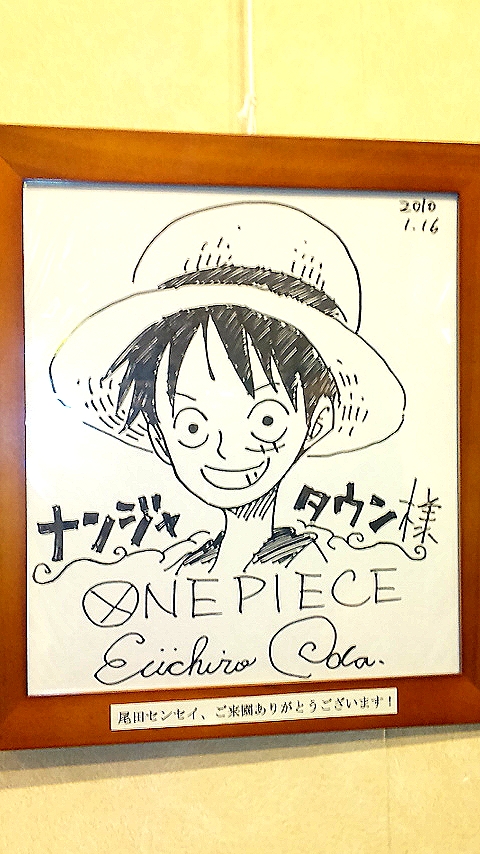 2010
1.16
ナンジャ タウン様
ONE PIECE
Eiichiro Oda.
尾田センセイ、ご来園ありがとうございます！